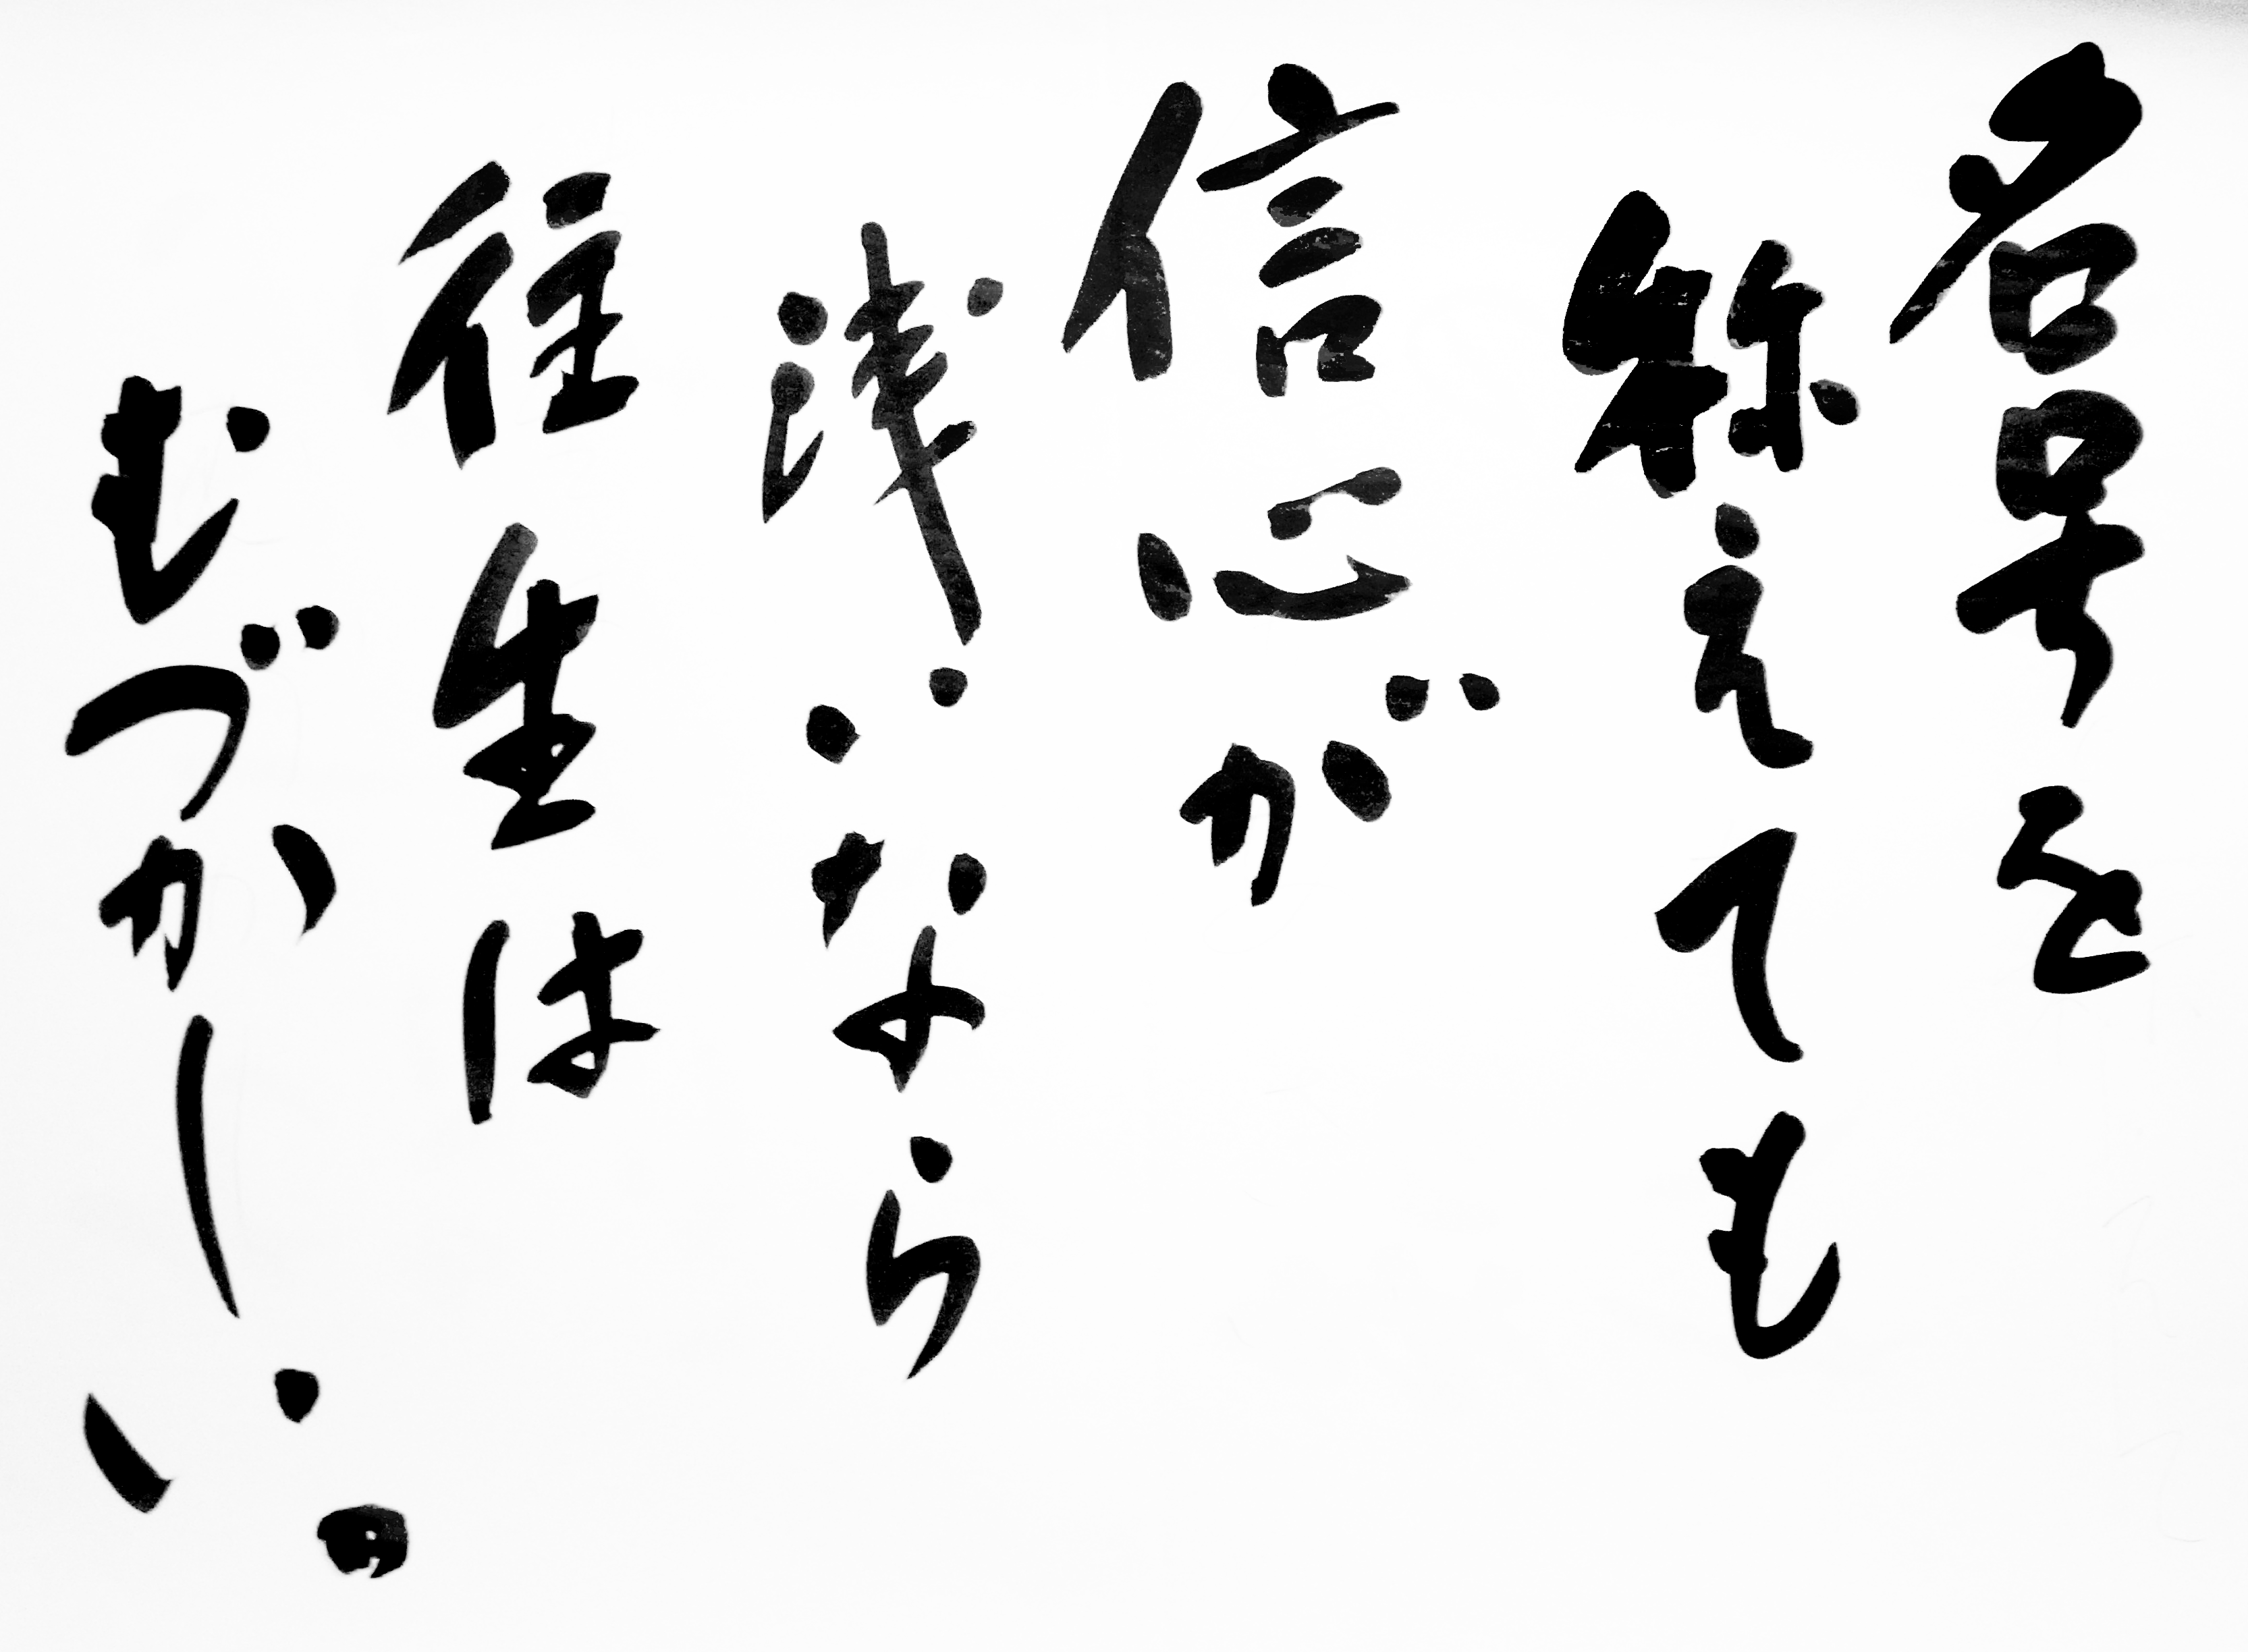 名号を
称えても
信心が
浅いなら
往生は
むづかしい。